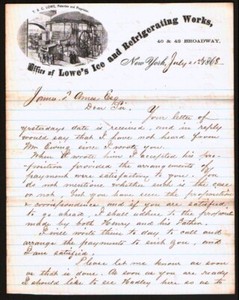 Office of Lowe's Ice and Refrigerating Works,
BROADWAY.
New York, July 1868
Dear Sir,
Your letter of
yesterdays date is received, and in reply
would say that I have not heard from
Mr Ewing since I wrote you.
When I wrote him I accepted his pro-
position provided the arrangements of
payment were satisfactory to you. You
do not mention whether such is the case
or not. But you have seen the
correspondence and if you are satisfied
to go ahead, I shall adhere to the
made by both Henry and his Father.
I will write them to day to call and
arrange the payments to suit you, and
I am satisfied.
Please let me know as soon
as that is done. As soon as you are ready
I should like to see here so as to